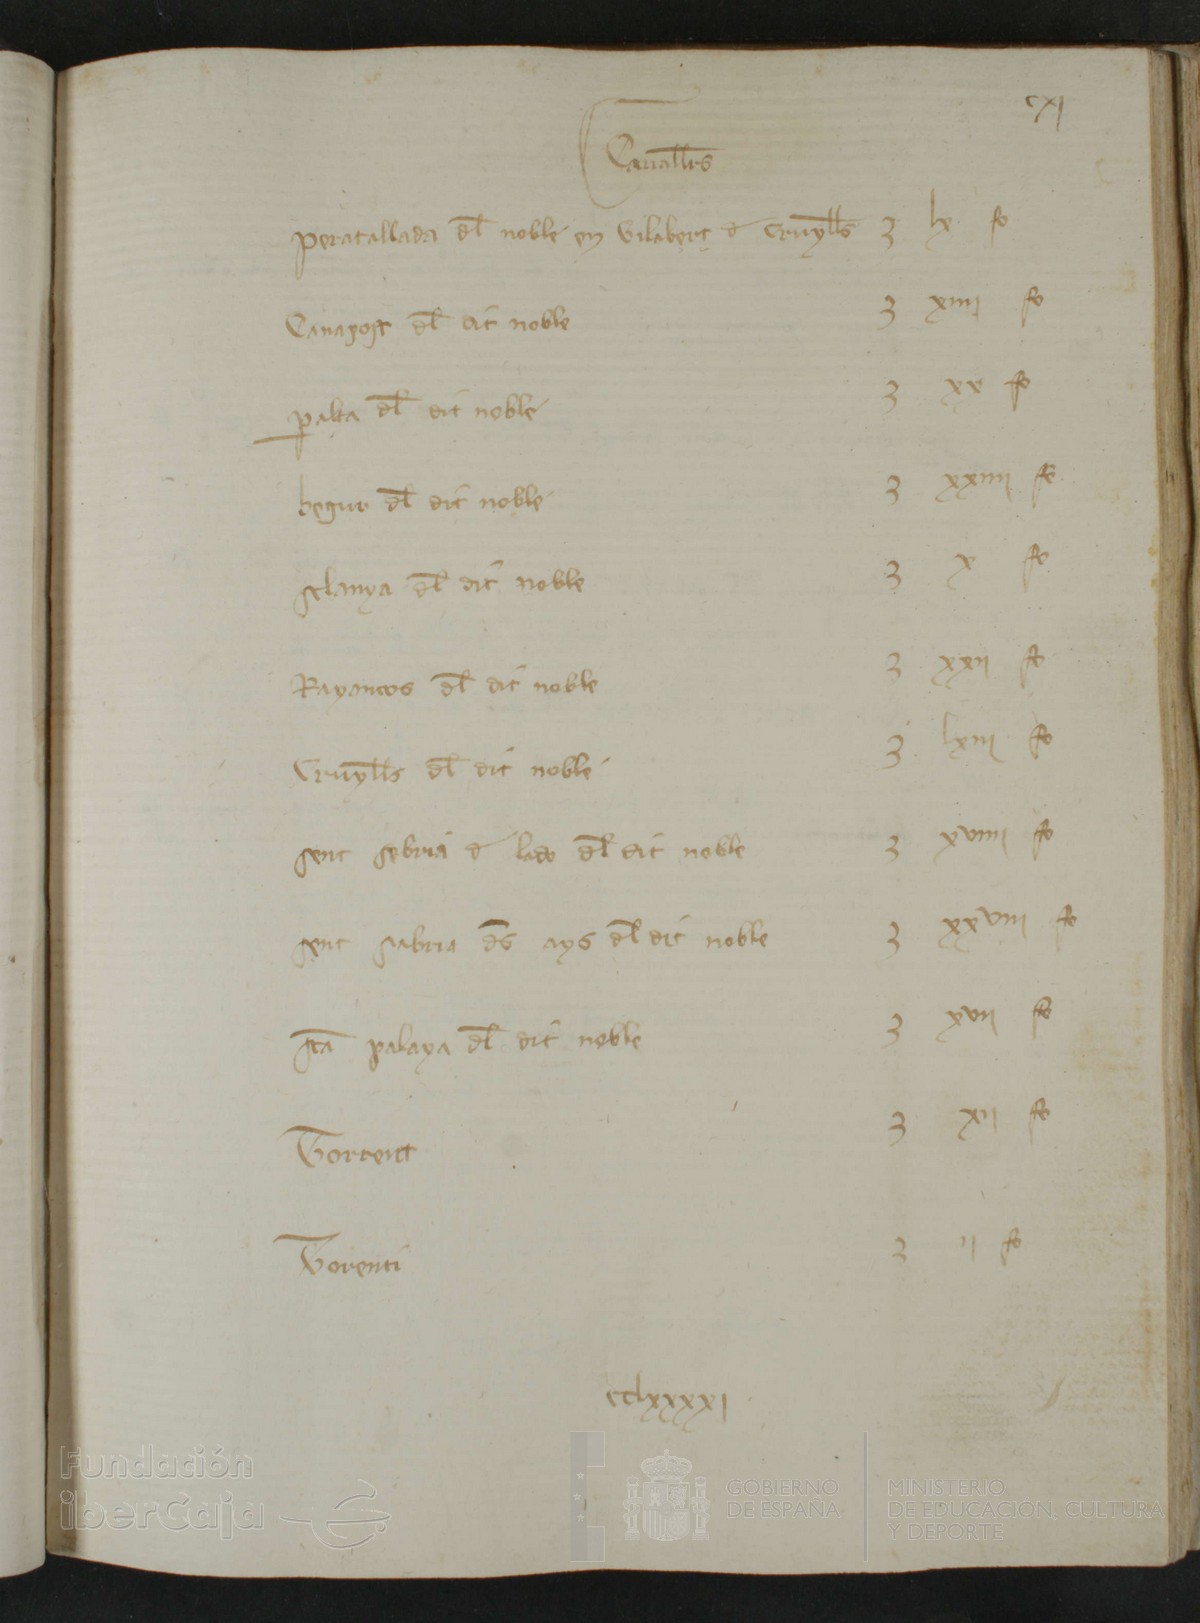 cxj
Cauallrs
peratallada dl noble en Gilabert d Cruylls ʒ lx fo
Canapost dl dit noble ʒ xiiij fo
palça dl dit noble ʒ xx fo
begur dl dit noble ʒ xxiiij fo
sclanya dl dit noble ʒ x fo
Rayancos dl dit noble ʒ xxij fo
Cruylls dl dit noble ʒ lxiij fo
sent sebria d lado dl dit noble ʒ xviiij fo
sent sabria ds ays dl dit noble ʒ xxviij fo
sta palaya dl dit noble ʒ xvij fo
Torrent ʒ xij fo
Torenti ʒ ij fo
cclxxxxj
Fundación
iberCaja
GOBIERNO
DE ESPAÑA
MINISTERIO
DE EDUCACIÓN, CULTURA
Y DEPORTE